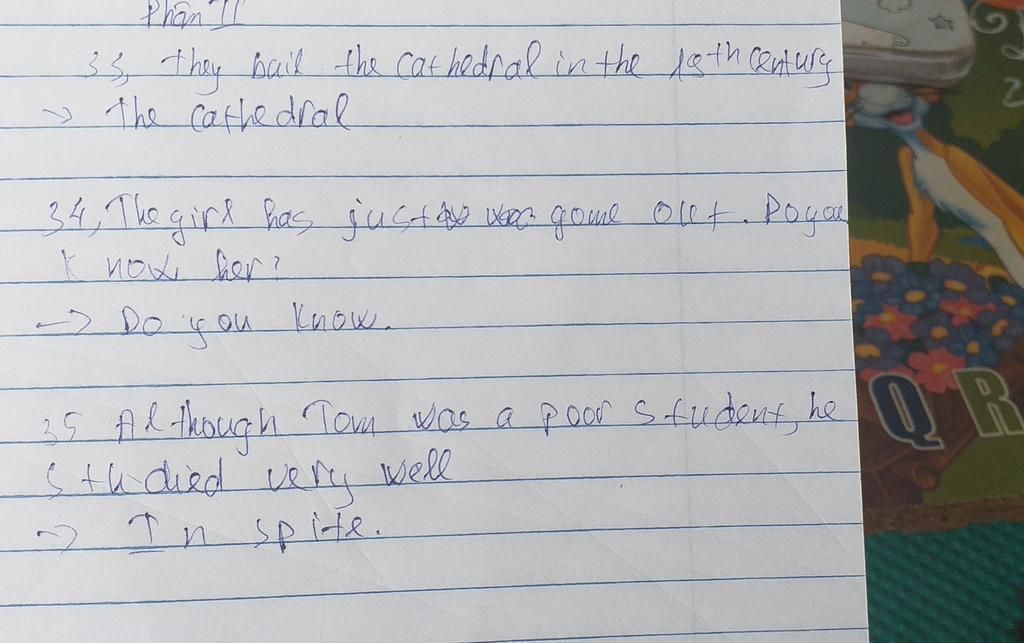 Phần II
33, they bail the cathedral in the 18th century
-> the cathedral
34, The girl has just gome out. Do you
know her?
-> Do you know.
35 Although Tom was a poor student, he
studied very well
-> In spite.
Q R